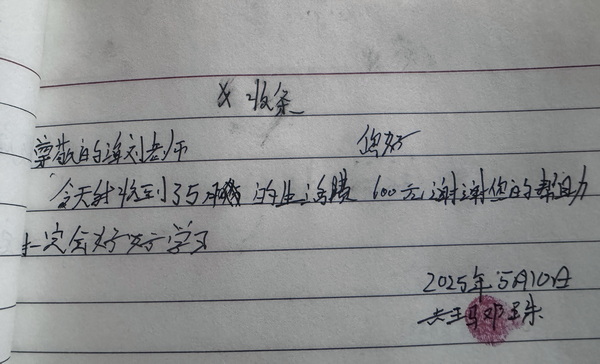 收条
尊敬的 刘老师 您好
今天我收到了5 的生活费600元谢谢您的帮助
我一定会好好学习
2025年5月10日
邓玉朱